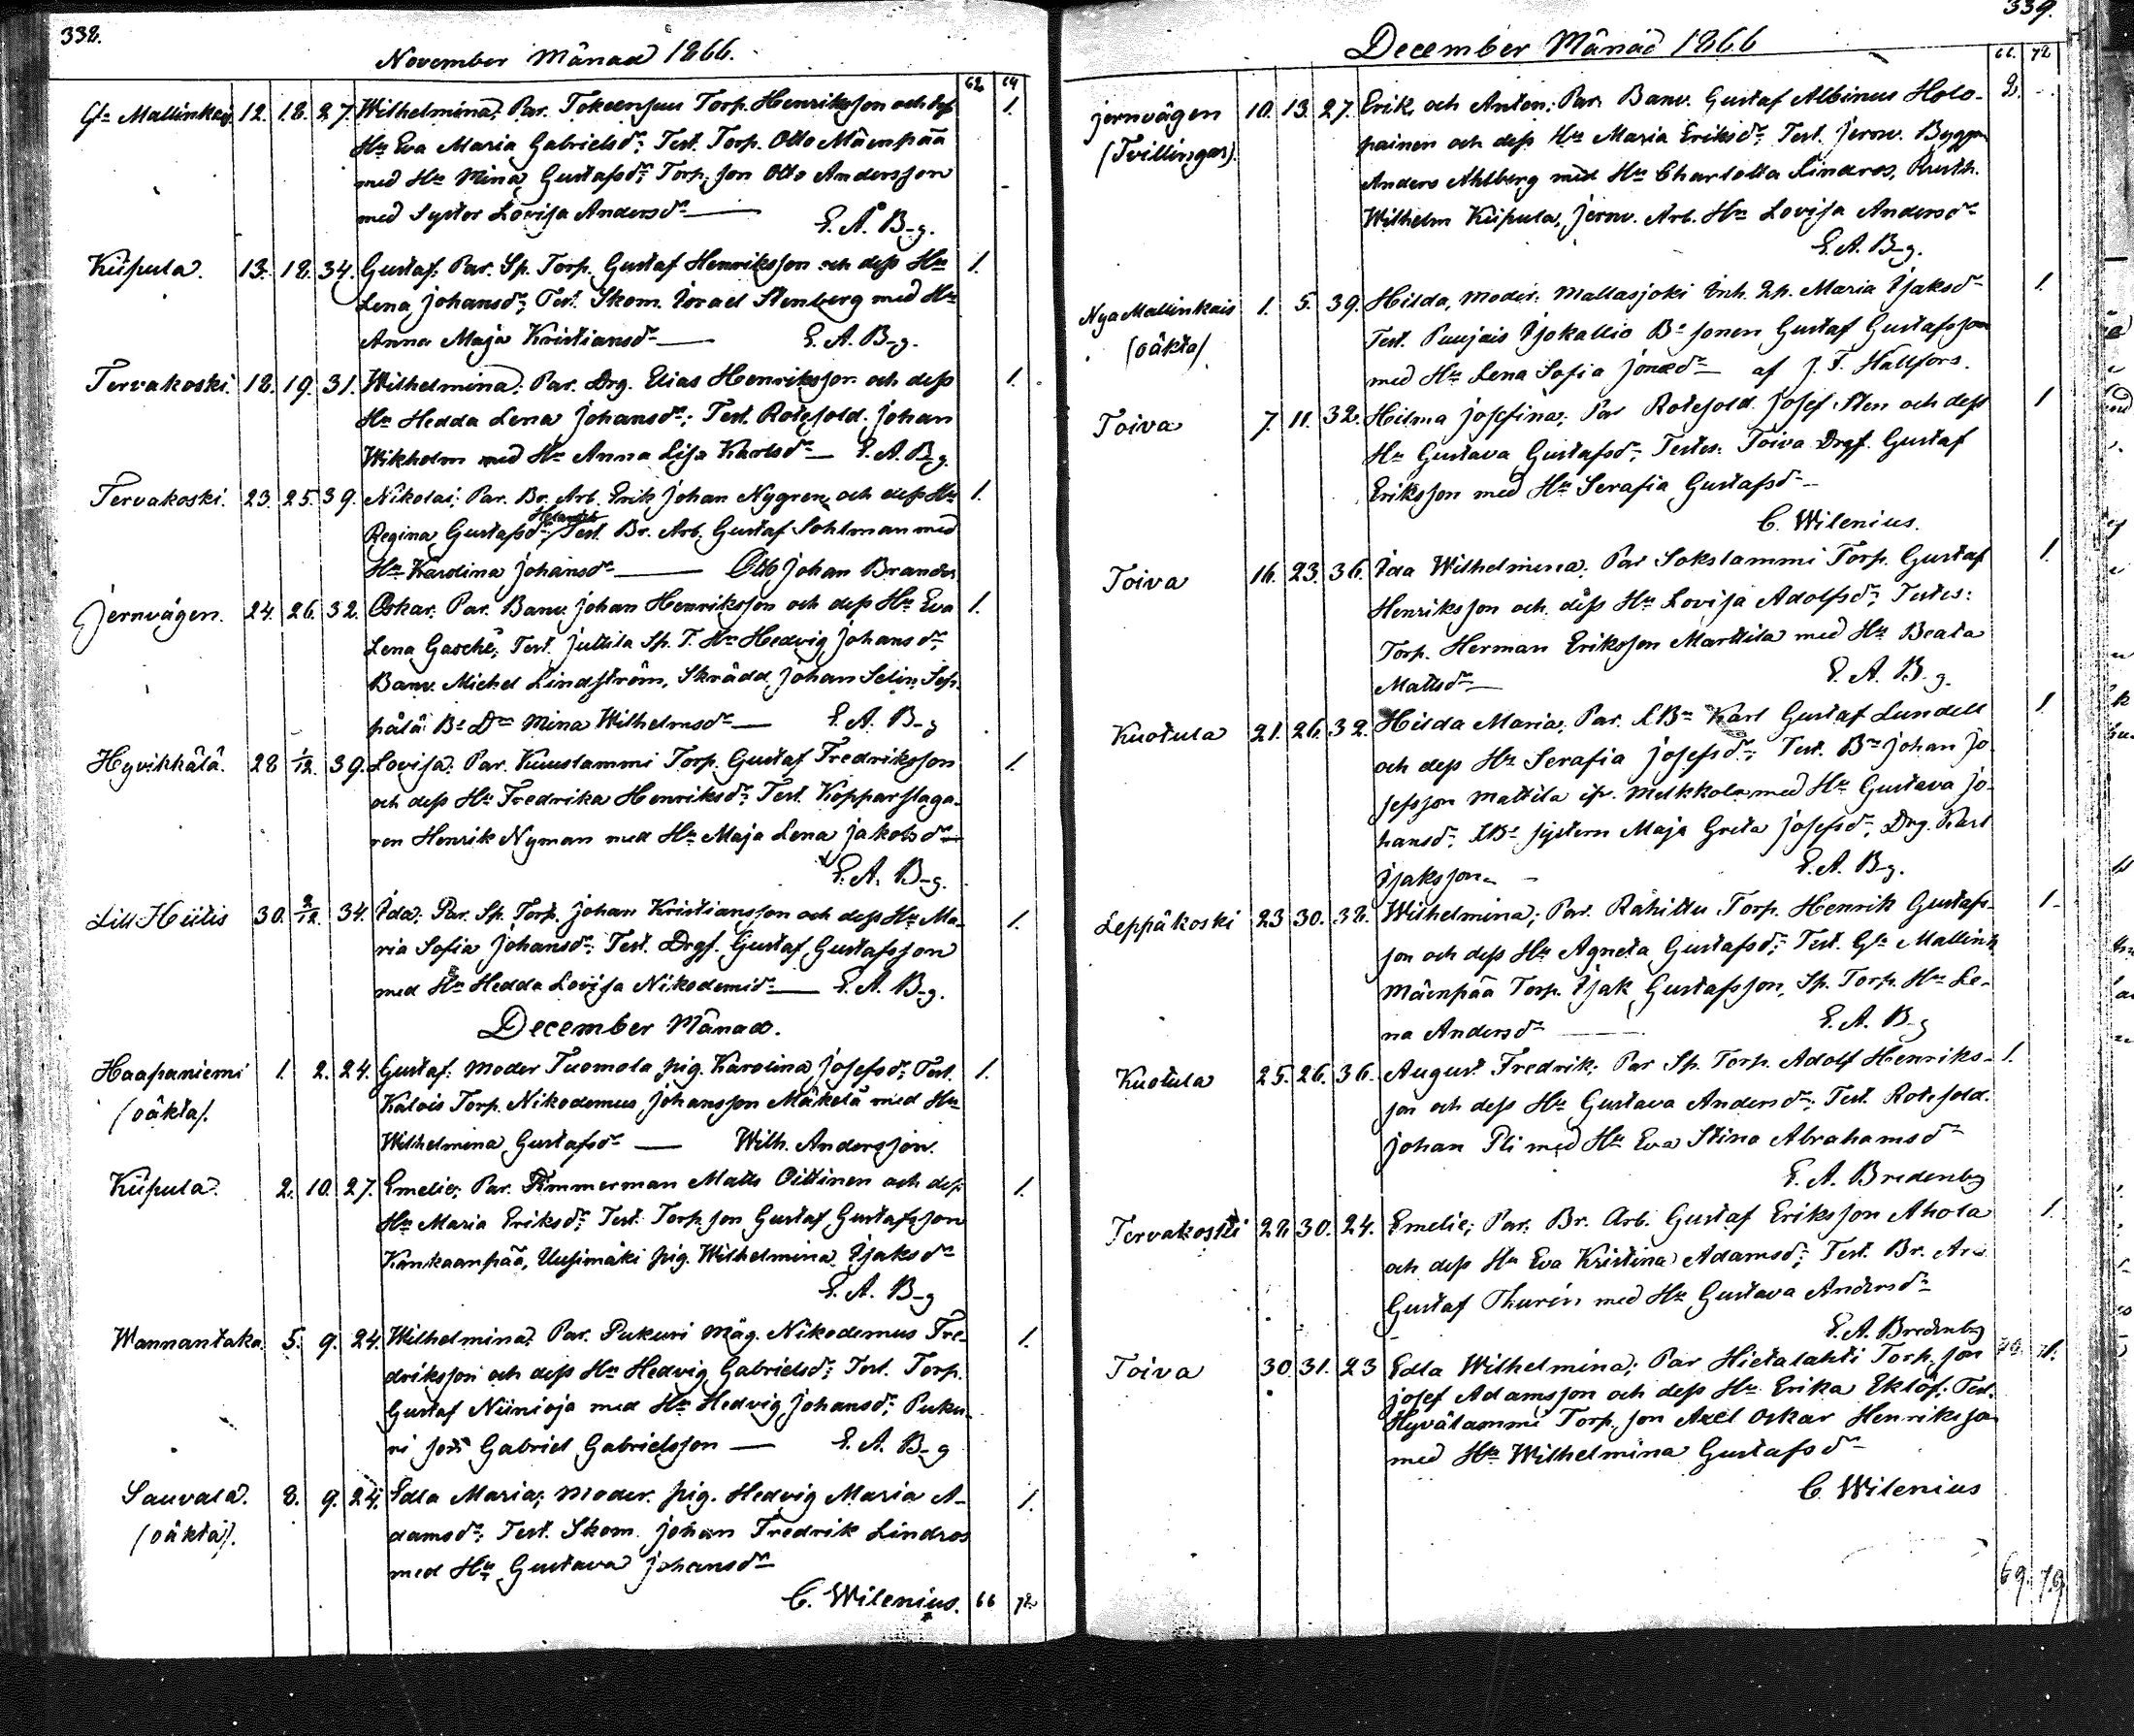 338.
November Månad 1866.
62 64
Gla Mallinkais 12. 18. 27. Wilhelmina; Par. Torp. Henriksson och dess 1.
Hu Eva Maria Gabrielsdr; Test. Torp. Otto Mäenpää
med Hu Mina Gustafsdr; Torp. son Otto Andersson
med Syster Lovisa Andersdr —
E. A. B-g.
Kiipula. 13. 18. 34. Gustaf; Par. Sp. Torp. Gustaf Henriksson och dess Hu 1.
Lena Johansdr; Test. Skom. Israel Stenberg med Hu
Anna Maja Kristiansdr — E. A. B-g.
Tervakoski. 18. 19. 31. Wilhelmina; Par. Drg. Elias Henriksson och dess 1.
Hu Hedda Lena Johansdr; Test. Rotesold. Johan
Wikholm med Hu Anna Lisa Karlsdr — E. A. B-g.
Tervakoski. 23. 25. 39. Nikolai; Par. Br. Arb. Erik Johan Nygren och dess Hu 1.
Regina Gustafsdr; Test. Br. Arb. Gustaf Sohlman med
Hu Karolina Johansdr — Otto Johan Brander
Jernvägen. 24. 26. 32. Oskar; Par. Banv. Johan Henriksson och dess Hu Eva 1.
Lena Gasche; Test. Juttila Sp. T. Hu Hedvig Johansdr;
Banv. Michel Lindström, Skrädd. Johan Selin, Sep-
pälä Bs Dr Mina Wilhelmsdr — E. A. B-g
Hyvikkälä. 28 1/12. 39. Lovisa; Par. Kuuslammi Torp. Gustaf Fredriksson 1.
och dess Hu Fredrika Henriksdr; Test. Kopparslaga-
ren Henrik Nyman med Hu Maja Lena Jakobsdr —
E. A. B-g.
Lill-Hiitis 30. 2/12. 34. Ida; Par. Sp. Torp. Johan Kristiansson och dess Hu Ma- 1.
ria Sofia Johansdr; Test. Drgf. Gustaf Gustafsson
med Hu Hedda Lovisa Nikodemidr — E. A. B-g.
December Månad.
Haapaniemi 1. 2. 24. Gustaf; Moder Tuomola pig. Karolina Josefsdr; Test. 1.
(oäkta). Kalois Torp. Nikodemus Johansson Mäkelä med Hu
Wilhelmina Gustafsdr — Wilh. Andersson.
Kiipula. 2. 10. 27. Emelie; Par. Timmerman Matts Oittinen och dess 1.
Hu Maria Eriksdr; Test. Torp. son Gustaf Gustafsson
Kankaanpää, Uusimäki pig. Wilhelmina Isaksdr
E. A. B-g
Wannantaka 5. 9. 24. Wilhelmina; Par. Pukuri Måg. Nikodemus Fre- 1.
driksson och dess Hu Hedvig Gabrielsdr; Test. Torp.
Gustaf Niinioja med Hu Hedvig Johansdr; Puku-
ri son Gabriel Gabrielsson — E. A. B-g
Sauvala. 8. 9. 24. Edla Maria; Moder. pig. Hedvig Maria A- 1.
(oäkta). damsdr; Test. Skom. Johan Fredrik Lindros
med Hu Gustava Johansdr
C. Wilenius. 66 72
339.
December Månad 1866
66. 72
Jernvägen 10. 13. 27. Erik och Anton; Par. Banv. Gustaf Albinus Holo- 2.
(Tvillingar). painen och dess Hu Maria Eriksdr; Test. Jernv. Byggm
Anders Ahlberg med Hu Charlotta Lindros, Rusth.
Wilhelm Kiipula, Jernv. Arb. Hu Lovisa Andersdr
E. A. B-g.
Nya Mallinkais 1. 5. 39. Hilda, Moder: Mallasjoki Inh. Maria Isaksdr 1.
(oäkta) Test. Puujais Isokallio Bs sonen Gustaf Gustafsson
med Hu Lena Sofia Jonædr — af J. F. Hallfors.
Toiva 7. 11. 32. Hilma Josefina; Par Rotesold. Josef Sten och dess 1
Hu Gustava Gustafsdr; Testes: Toiva Drgf. Gustaf
Eriksson med Hu Serafia Gustafsdr —
C. Wilenius.
Toiva 16. 23. 36. Ida Wilhelmina; Par Sokslammi Torp. Gustaf 1.
Henriksson och dess Hu Lovisa Adolfsdr; Testes:
Torp. Herman Eriksson Marttila med Hu Beata
Mattsdr — E. A. B-g.
Kuotula 21. 26. 32. Hilda Maria; Par. LBn Karl Gustaf Lundell 1.
och dess Hu Serafia Josefsdr; Test. Bn Johan Jo-
sefsson Mattila ifr. Melkkola med Hu Gustava Jo-
hansdr; LBs systern Maja Greta Josefsdr, Drg. Karl
Isaksson. — E. A. B-g.
Leppäkoski 23 30. 38. Wilhelmina; Par. Rahittu Torp. Henrik Gustafs- 1.
son och dess Hu Agneta Gustafsdr; Test. Gla Mallink
Mäenpää Torp. Isak Gustafsson, Sp. Torp. Hu Le-
na Andersdr — E. A. B-g
Kuotula 25. 26. 36. August Fredrik; Par Sp. Torp. Adolf Henriks- 1.
son och dess Hu Gustava Andersdr; Test. Rotesold.
Johan Pli med Hu Eva Stina Abrahamsdr
E. A. Bredenbg
Tervakoski 28. 30. 24. Emelie; Par. Br. Arb. Gustaf Eriksson Ahola 1.
och dess Hu Eva Kristina Adamsdr; Test. Br. Arb.
Gustaf Thurén med Hu Gustava Andersdr
E. A. Bredenbg
Toiva 30. 31. 23 Edla Wilhelmina; Par Hietalahti Torp. son 1.
Josef Adamsson och dess Hu Erika Eklöf; Test.
Hyvälammi Torp. son Axel Oskar Henriksson
med Hu Wilhelmina Gustafsdr
C. Wilenius
69. 79